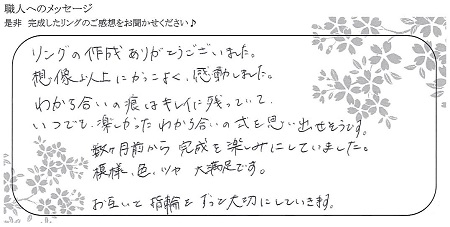 職人へのメッセージ
是非 完成したリングのご感想をお聞かせください♪
リングの作成ありがとうございました。
想像以上にかっこよく、感動しました。
わかち合いの痕はキレイに残っていて、
いつでも、楽しかったわかち合いの式を思い出せそうです。
数ヶ月前から完成を楽しみにしていました。
模様、色、ツヤ 大満足です。
お互いで指輪をずっと大切にしていきます。